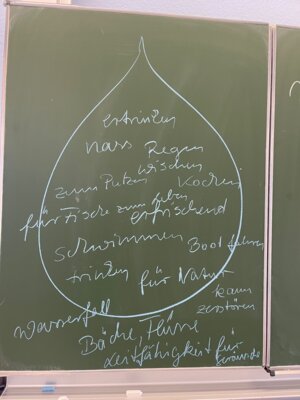 ertrinken
nass Regen
wischen
zum Putzen Kochen
für Fische zum Leben
erfrischend
schwimmen Boot fahren
trinken für Natur
kann
zerstören
Wasserfall
Bäche, Flüsse
Leitfähigkeit für